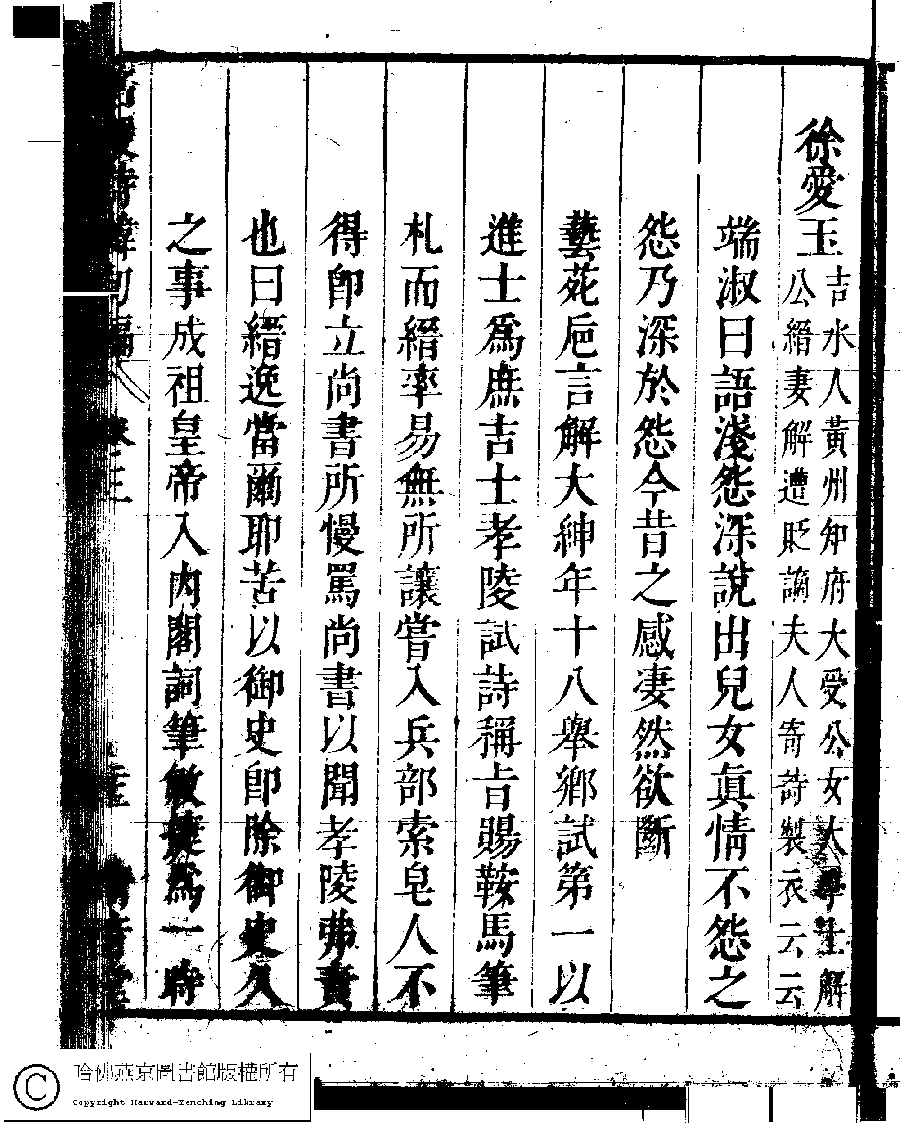 徐愛玉
吉水人黃州知府大受公女大學士解
公縉妻解遭貶謫夫人寄詩製衣云云
端淑曰語淺怨深說出兒女真情不怨之
怨乃深於怨今昔之感凄然欲斷
藝苑巵言解大紳年十八舉鄉試第一以
進士爲庶吉士孝陵試詩稱㫖賜鞍馬筆
札而縉率易無所讓嘗入兵部索皂人不
得卽立尚書所慢罵尚書以聞孝陵弗責
也曰縉逸當爾耶苦以御史卽除御史久
之事成祖皇帝入內閣詞筆敏捷爲一時
名媛詩緯初編 卷三
哈佛燕京圖書館版權所有
Copyright Harvard-Yenching Library